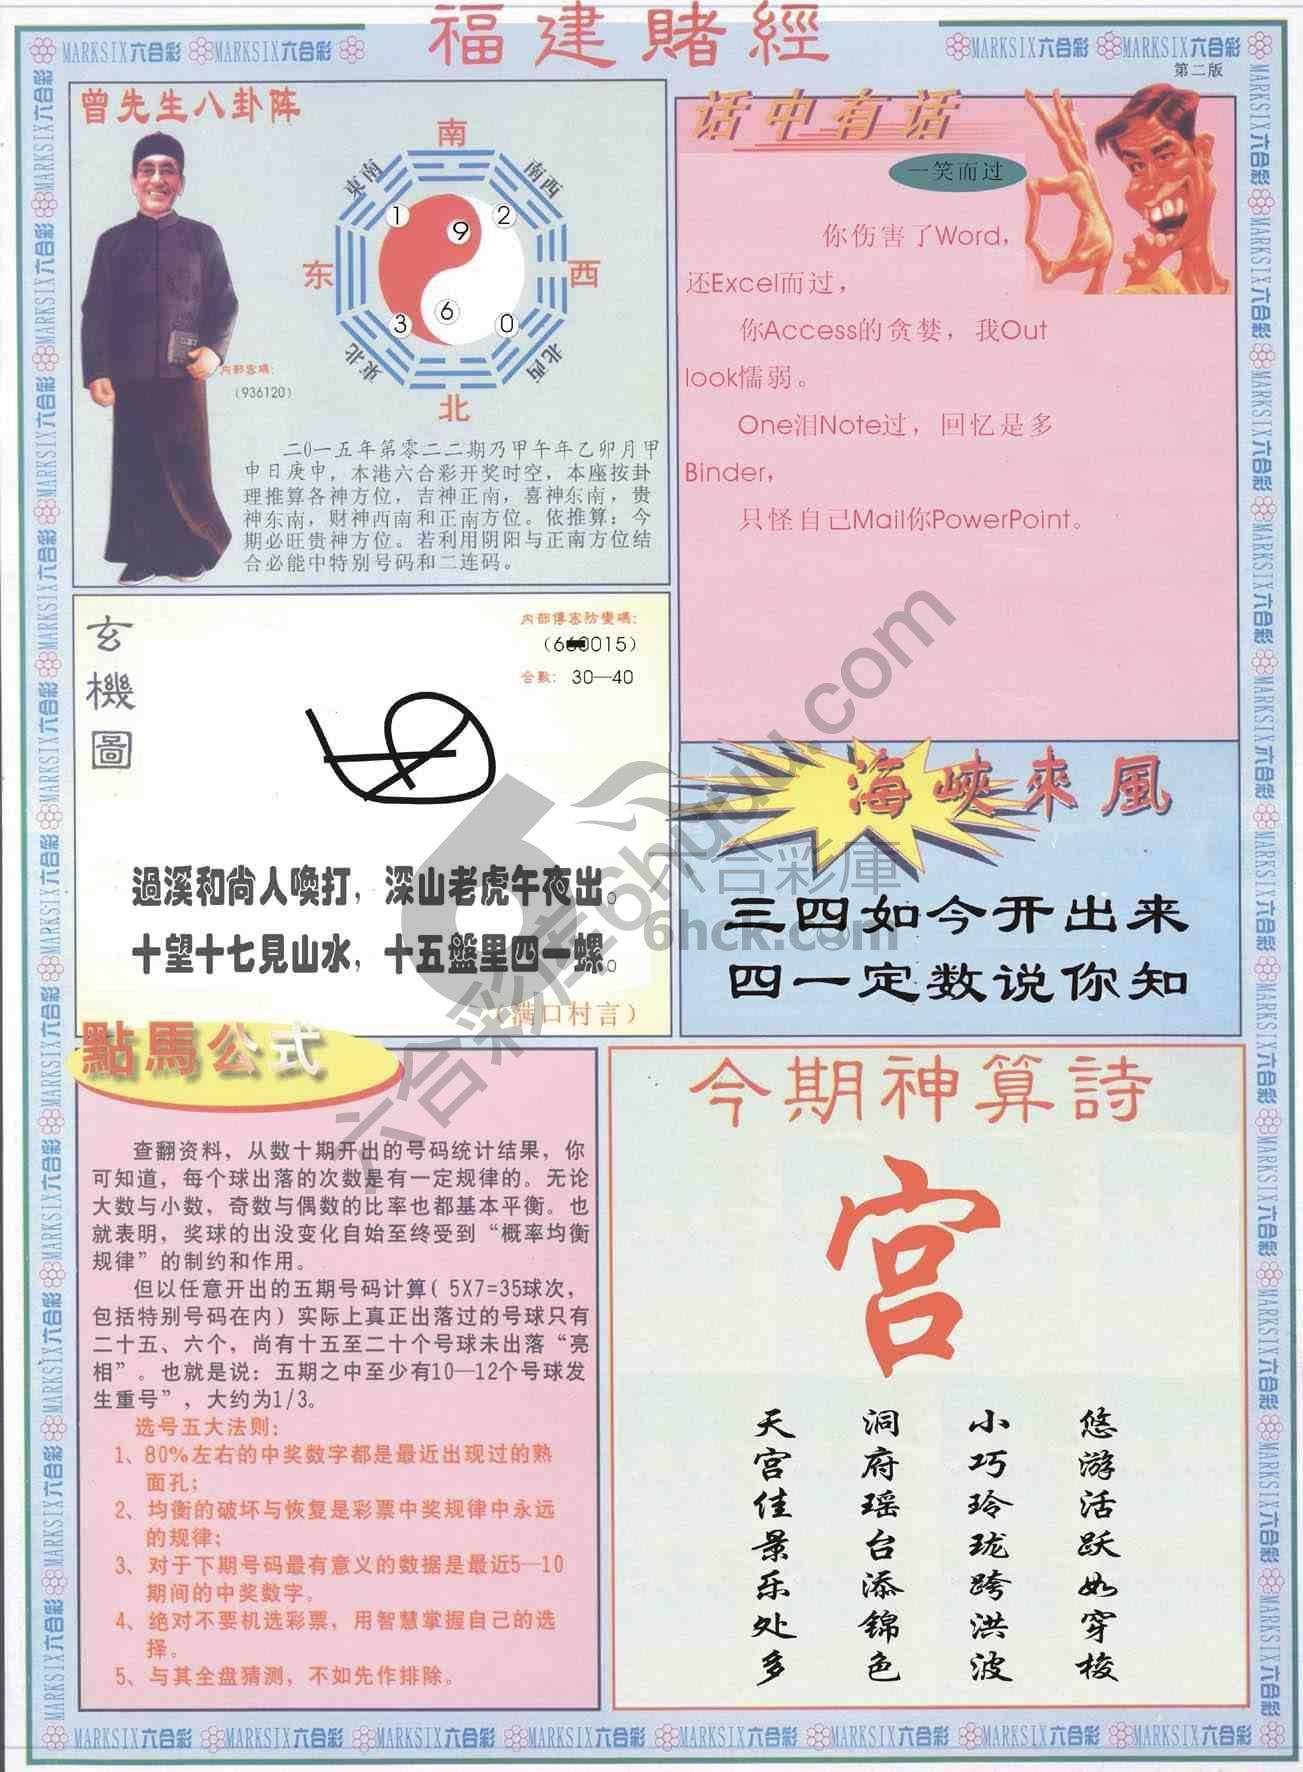 福建賭經
MARKSIX六合彩 MARKSIX六合彩
MARKSIX六合彩 MARKSIX六合彩
第二版
曾先生八卦阵
南
東南
南西
1
9
2
东
西
3
6
0
東北
北西
北
内部密碼：
（936120）
二0一五年第零二二期乃甲午年乙卯月甲
申日庚申，本港六合彩开奖时空，本座按卦
理推算各神方位，吉神正南，喜神东南，贵
神东南，财神西南和正南方位。依推算：今
期必旺贵神方位。若利用阴阳与正南方位结
合必能中特别号码和二连码。
话中有话
一笑而过
你伤害了Word，
还Excel而过，
你Access的贪婪，我Out
look懦弱。
One泪Note过，回忆是多
Binder，
只怪自己Mail你PowerPoint。
玄機圖
内部傳密防變碼：
合數：30—40
過溪和尚人喚打，深山老虎午夜出。
十望十七見山水，十五盤里四一螺。
（满口村言）
海峽來風
三四如今开出来
四一定数说你知
點馬公式
查翻资料，从数十期开出的号码统计结果，你
可知道，每个球出落的次数是有一定规律的。无论
大数与小数，奇数与偶数的比率也都基本平衡。也
就表明，奖球的出没变化自始至终受到“概率均衡
规律”的制约和作用。
但以任意开出的五期号码计算（5X7=35球次，
包括特别号码在内）实际上真正出落过的号球只有
二十五、六个，尚有十五至二十个号球未出落“亮
相”。也就是说：五期之中至少有10—12个号球发
生重号”，大约为1/3。
选号五大法则：
1、80%左右的中奖数字都是最近出现过的熟
面孔；
2、均衡的破坏与恢复是彩票中奖规律中永远
的规律；
3、对于下期号码最有意义的数据是最近5—10
期间的中奖数字。
4、绝对不要机选彩票，用智慧掌握自己的选
择。
5、与其全盘猜测，不如先作排除。
今期神算詩
宫
天宫佳景乐处多
洞府瑶台添锦色
小巧玲珑跨洪波
悠游活跃如穿梭
六合彩库6huuu.com
六合彩庫
6hck.com
MARKSIX六合彩 MARKSIX六合彩 MARKSIX六合彩 MARKSIX六合彩 MARKSIX六合彩 MARKSIX六合彩 MARKSIX六合彩 MARKSIX六合彩